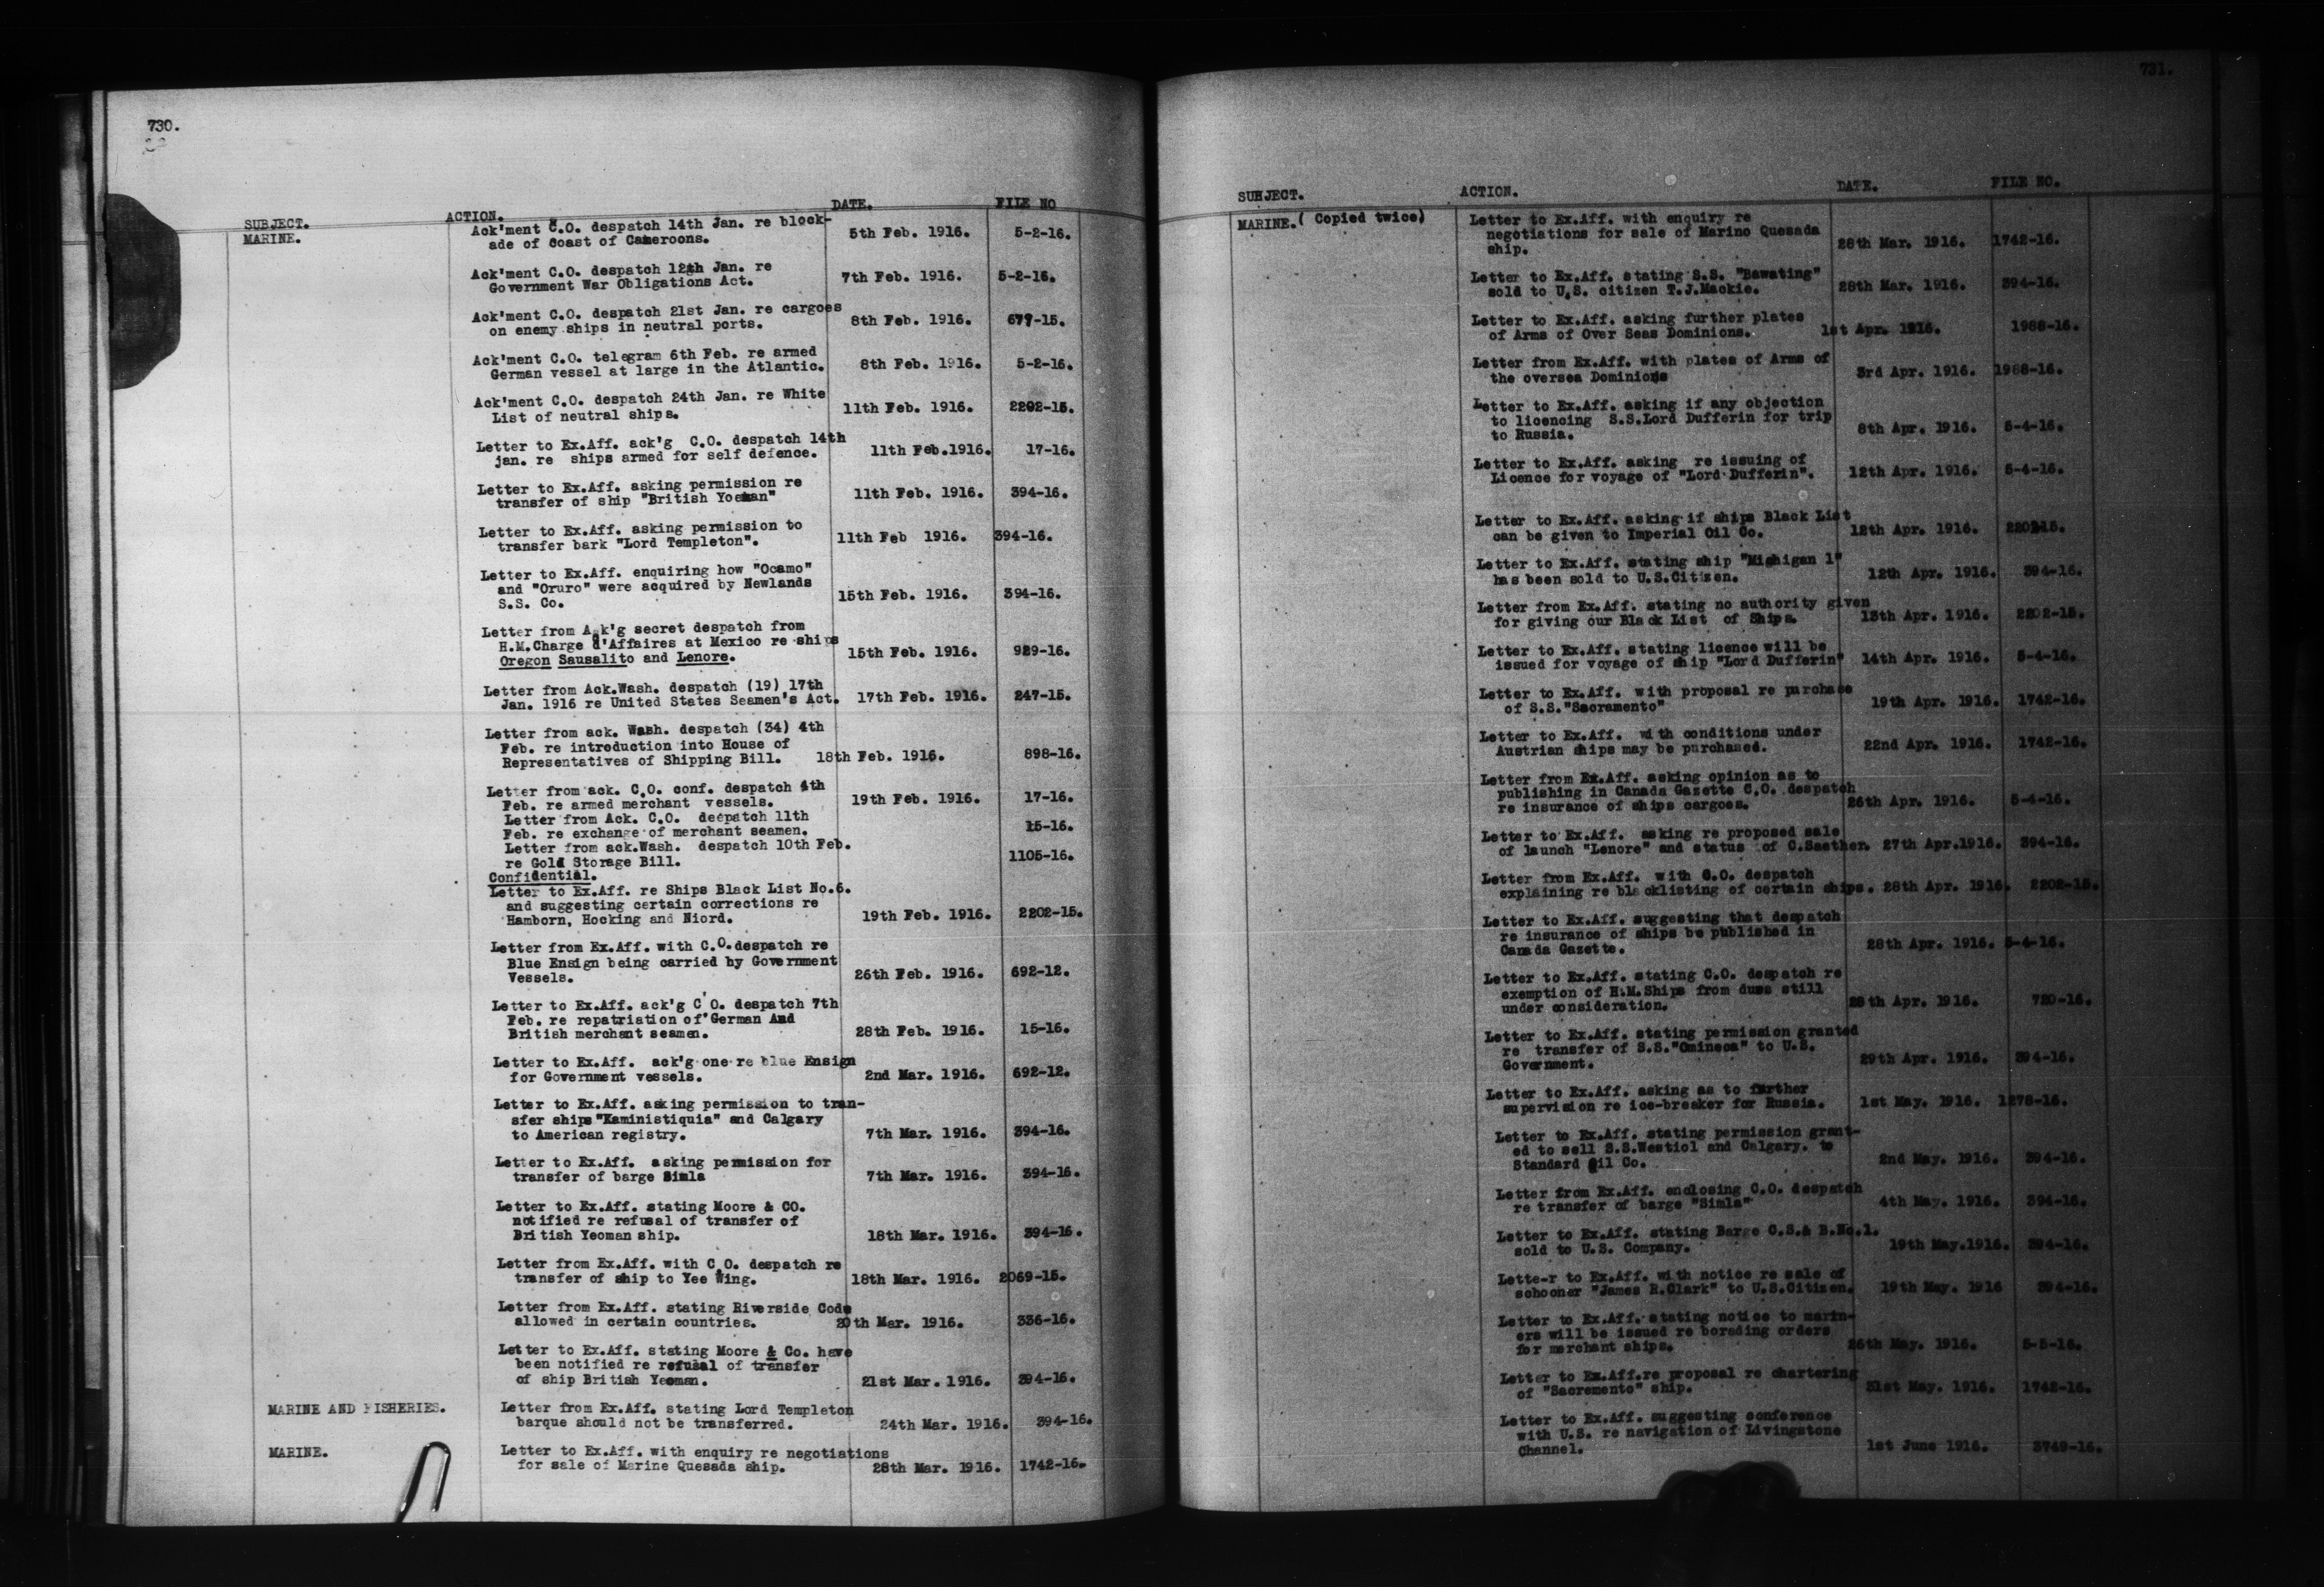 730.
SUBJECT. ACTION. DATE. FILE NO
MARINE. Ack'ment C.O. despatch 14th Jan. re block-
ade of coast of Cameroons. 5th Feb. 1916. 5-2-16.
Ack'ment C.O. despatch 12th Jan. re
Government War Obligations Act. 7th Feb. 1916. 5-2-16.
Ack'ment C.O. despatch 21st Jan. re cargoes
on enemy ships in neutral ports. 8th Feb. 1916. 677-15.
Ack'ment C.O. telegram 6th Feb. re armed
German vessel at large in the Atlantic. 8th Feb. 1916. 5-2-16.
Ack'ment C.O. despatch 24th Jan. re White
List of neutral ships. 11th Feb. 1916. 2202-15.
Letter to Ex.Aff. ack'g C.O. despatch 14th
jan. re ships armed for self defence. 11th Feb.1916. 17-16.
Letter to Ex.Aff. asking permission re
transfer of ship "British Yoeman" 11th Feb. 1916. 394-16.
Letter to Ex.Aff. asking permission to
transfer bark "Lord Templeton". 11th Feb 1916. 394-16.
Letter to Ex.Aff. enquiring how "Ocamo"
and "Oruro" were acquired by Newlands
S.S. Co. 15th Feb. 1916. 394-16.
Letter from Ack'g secret despatch from
H.M.Charge d'Affaires at Mexico re ships
Oregon Sausalito and Lenore. 15th Feb. 1916. 929-16.
Letter from Ack.Wash. despatch (19) 17th
Jan. 1916 re United States Seamen's Act. 17th Feb. 1916. 247-15.
Letter from ack. Wash. despatch (34) 4th
Feb. re introduction into House of
Representatives of Shipping Bill. 18th Feb. 1916. 898-16.
Letter from ack. C.O. conf. despatch 4th
Feb. re armed merchant vessels. 19th Feb. 1916. 17-16.
Letter from Ack. C.O. despatch 11th
Feb. re exchange of merchant seamen. 15-16.
Letter from ack.Wash. despatch 10th Feb.
re Gold Storage Bill. 1105-16.
Confidential.
Letter to Ex.Aff. re Ships Black List No.6.
and suggesting certain corrections re
Hamborn, Hocking and Niord. 19th Feb. 1916. 2202-15.
Letter from Ex.Aff. with C.O. despatch re
Blue Ensign being carried by Government
Vessels. 26th Feb. 1916. 692-12.
Letter to Ex.Aff. ack'g C'O. despatch 7th
Feb. re repatriation of German And
British merchant seamen. 28th Feb. 1916. 15-16.
Letter to Ex.Aff. ack'g one re blue Ensign
for Government vessels. 2nd Mar. 1916. 692-12.
Letter to Ex.Aff. asking permission to tran-
sfer ships "Kaministiquia" and Calgary
to American registry. 7th Mar. 1916. 394-16.
Letter to Ex.Aff. asking permission for
transfer of barge Simla 7th Mar. 1916. 394-16.
Letter to Ex.Aff. stating Moore & CO.
notified re refusal of transfer of
British Yeoman ship. 18th Mar. 1916. 394-16.
Letter from Ex.Aff. with C.O. despatch re
transfer of ship to Yee Wing. 18th Mar. 1916. 2069-15.
Letter from Ex.Aff. stating Riverside Code
allowed in certain countries. 20th Mar. 1916. 336-16.
Letter to Ex.Aff. stating Moore & Co. have
been notified re refusal of transfer
of ship British Yeoman. 21st Mar. 1916. 394-16.
MARINE AND FISHERIES. Letter from Ex.Aff. stating Lord Templeton
barque should not be transferred. 24th Mar. 1916. 394-16.
MARINE. Letter to Ex.Aff. with enquiry re negotiations
for sale of Marine Quesada ship. 28th Mar. 1916. 1742-16.
731.
SUBJECT. ACTION. DATE. FILE NO.
MARINE.( Copied twice) Letter to Ex.Aff. with enquiry re
negotiations for sale of Marino Quesada
ship. 28th Mar. 1916. 1742-16.
Letter to Ex.Aff. stating S.S. "Bawating"
sold to U.S. citizen T.J.Mackie. 28th Mar. 1916. 394-16.
Letter to Ex.Aff. asking further plates
of Arms of Over Seas Dominions. 1st Apr. 1916. 1988-16.
Letter from Ex.Aff. with plates of Arms of
the oversea Dominions 3rd Apr. 1916. 1988-16.
Letter to Ex.Aff. asking if any objection
to licencing S.S.Lord Dufferin for trip
to Russia. 8th Apr. 1916. 5-4-16.
Letter to Ex.Aff. asking re issuing of
Licence for voyage of "Lord Dufferin". 12th Apr. 1916. 5-4-16.
Letter to Ex.Aff. asking if ships Black List
can be given to Imperial Oil Co. 12th Apr. 1916.
Letter to Ex.Aff. stating ship "Michigan 1"
has been sold to U.S.Citizen. 12th Apr. 1916. 394-16.
Letter from Ex.Aff. stating no authority given
for giving our Black List of Ships. 13th Apr. 1916. 2202-15.
Letter to Ex.Aff. stating licence will be
issued for voyage of ship "Lord Dufferin" 14th Apr. 1916. 5-4-16.
Letter to Ex.Aff. with proposal re purchase
of S.S."Sacramento" 19th Apr. 1916. 1742-16.
Letter to Ex.Aff. with conditions under
Austrian ships may be purchased. 22nd Apr. 1916. 1742-16.
Letter from Ex.Aff. asking opinion as to
publishing in Canada Gazette C.O. despatch
re insurance of ships cargoes. 26th Apr. 1916. 5-4-16.
Letter to Ex.Aff. asking re proposed sale
of launch "Lenore" and status of C.Saether. 27th Apr.1916. 394-16.
Letter from Ex.Aff. with C.O. despatch
explaining re blacklisting of certain ships. 28th Apr. 1916. 2202-15.
Letter to Ex.Aff. suggesting that despatch
re insurance of ships be published in
Canada Gazette. 28th Apr. 1916. 5-4-16.
Letter to Ex.Aff. stating C.O. despatch re
exemption of H.M.Ships from dues still
under consideration. 28th Apr. 1916. 720-16.
Letter to Ex.Aff. stating permission granted
re transfer of S.S."Omineca" to U.S.
Government. 29th Apr. 1916. 394-16.
Letter to Ex.Aff. asking as to further
supervision re ice-breaker for Russia. 1st May. 1916. 1278-16.
Letter to Ex.Aff. stating permission grant-
ed to sell S.S.Westiol and Calgary. to
Standard Oil Co. 2nd May. 1916. 394-16.
Letter from Ex.Aff. enclosing C.O. despatch
re transfer of barge "Simla" 4th May. 1916. 394-16.
Letter to Ex.Aff. stating Barge C.S.& B.No.1.
sold to U.S. Company. 19th May.1916. 394-16.
Lette-r to Ex.Aff. with notice re sale of
schooner "James R.Clark" to U.S.Citizen. 19th May. 1916 394-16.
Letter to Ex.Aff. stating notice to marin-
ers will be issued re borading orders
for merchant ships. 26th May. 1916. 5-5-16.
Letter to Ex.Aff.re proposal re chartering
of "Sacremento" ship. 31st May. 1916. 1742-16.
Letter to Ex.Aff. suggesting conference
with U.S. re navigation of Livingstone
Channel. 1st June 1916. 3749-16.